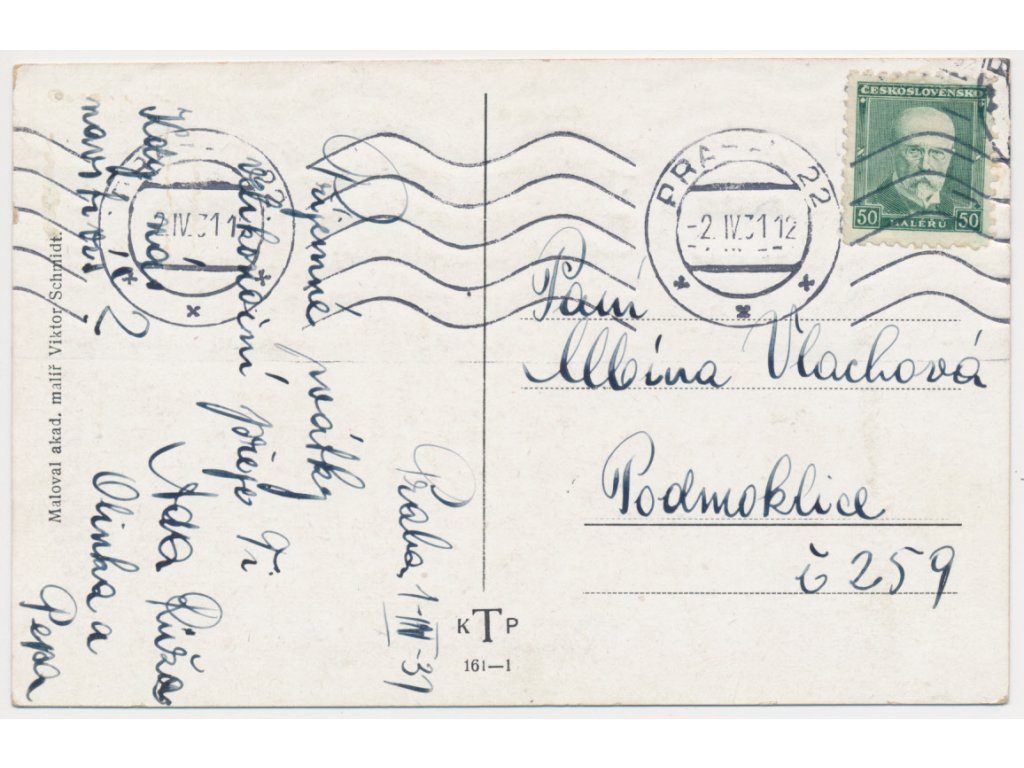 Praha, 1-IV-31
Příjemné svátky
velikonoční přeje Ti
Kdy nás
Áda Růža
navštívíš?
Olinka a
Pepa
Maloval akad. malíř Viktor Schmidt.
K T P
161—1
PRAHA 22
-2.IV.31 12
22
-2.IV.31 1
ČESKOSLOVENSKO
50 HALÉŘŮ 50
Paní
Albína Vlachová
Podmoklice
č 259